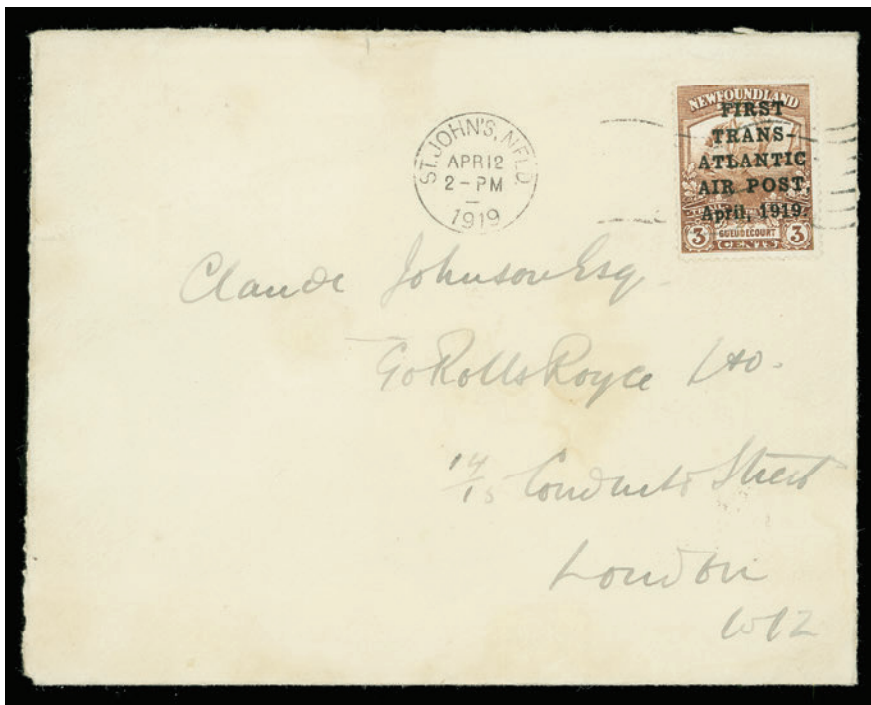 ST. JOHN'S, NFLD.
APR 12
2 - PM
1919
NEWFOUNDLAND
FIRST
TRANS-
ATLANTIC
AIR POST,
April, 1919.
GUEUDECOURT
3 CENTS 3
Claude Johnson Esq.
c/o Rolls Royce Ltd.
14/15 Conduit Street
London
W12